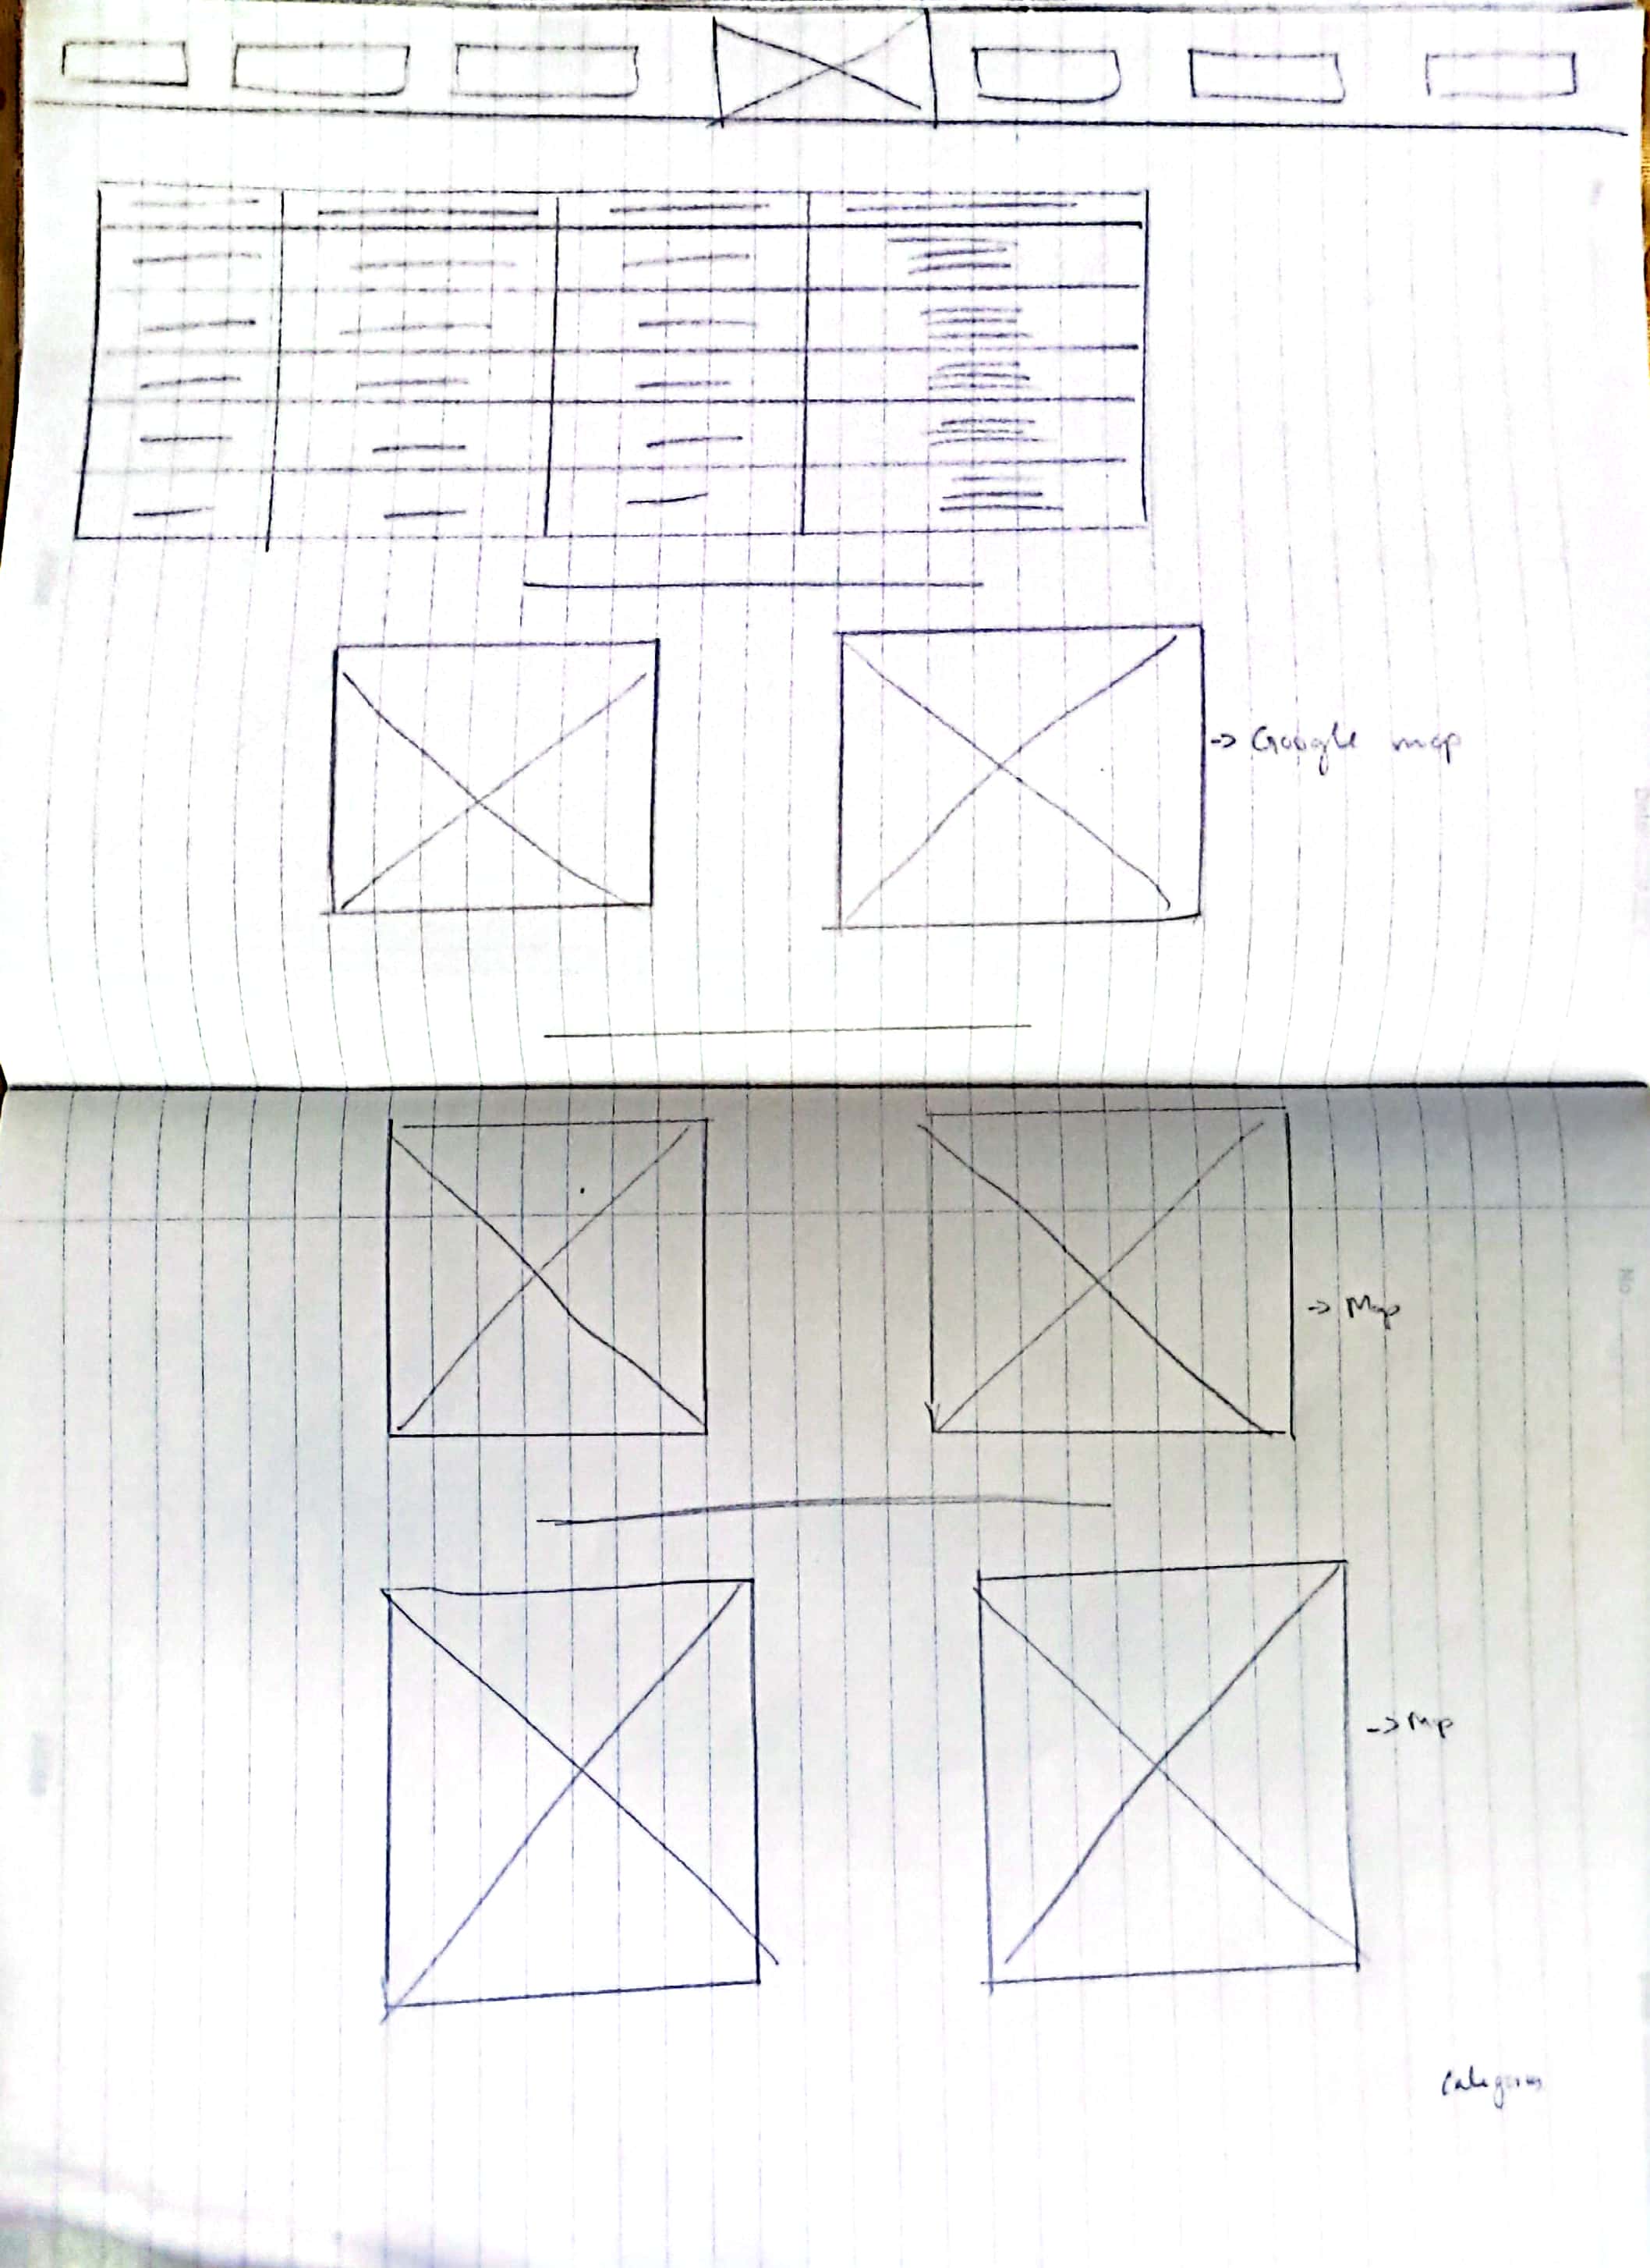 -> Google map
-> Map
-> Mp
Categories